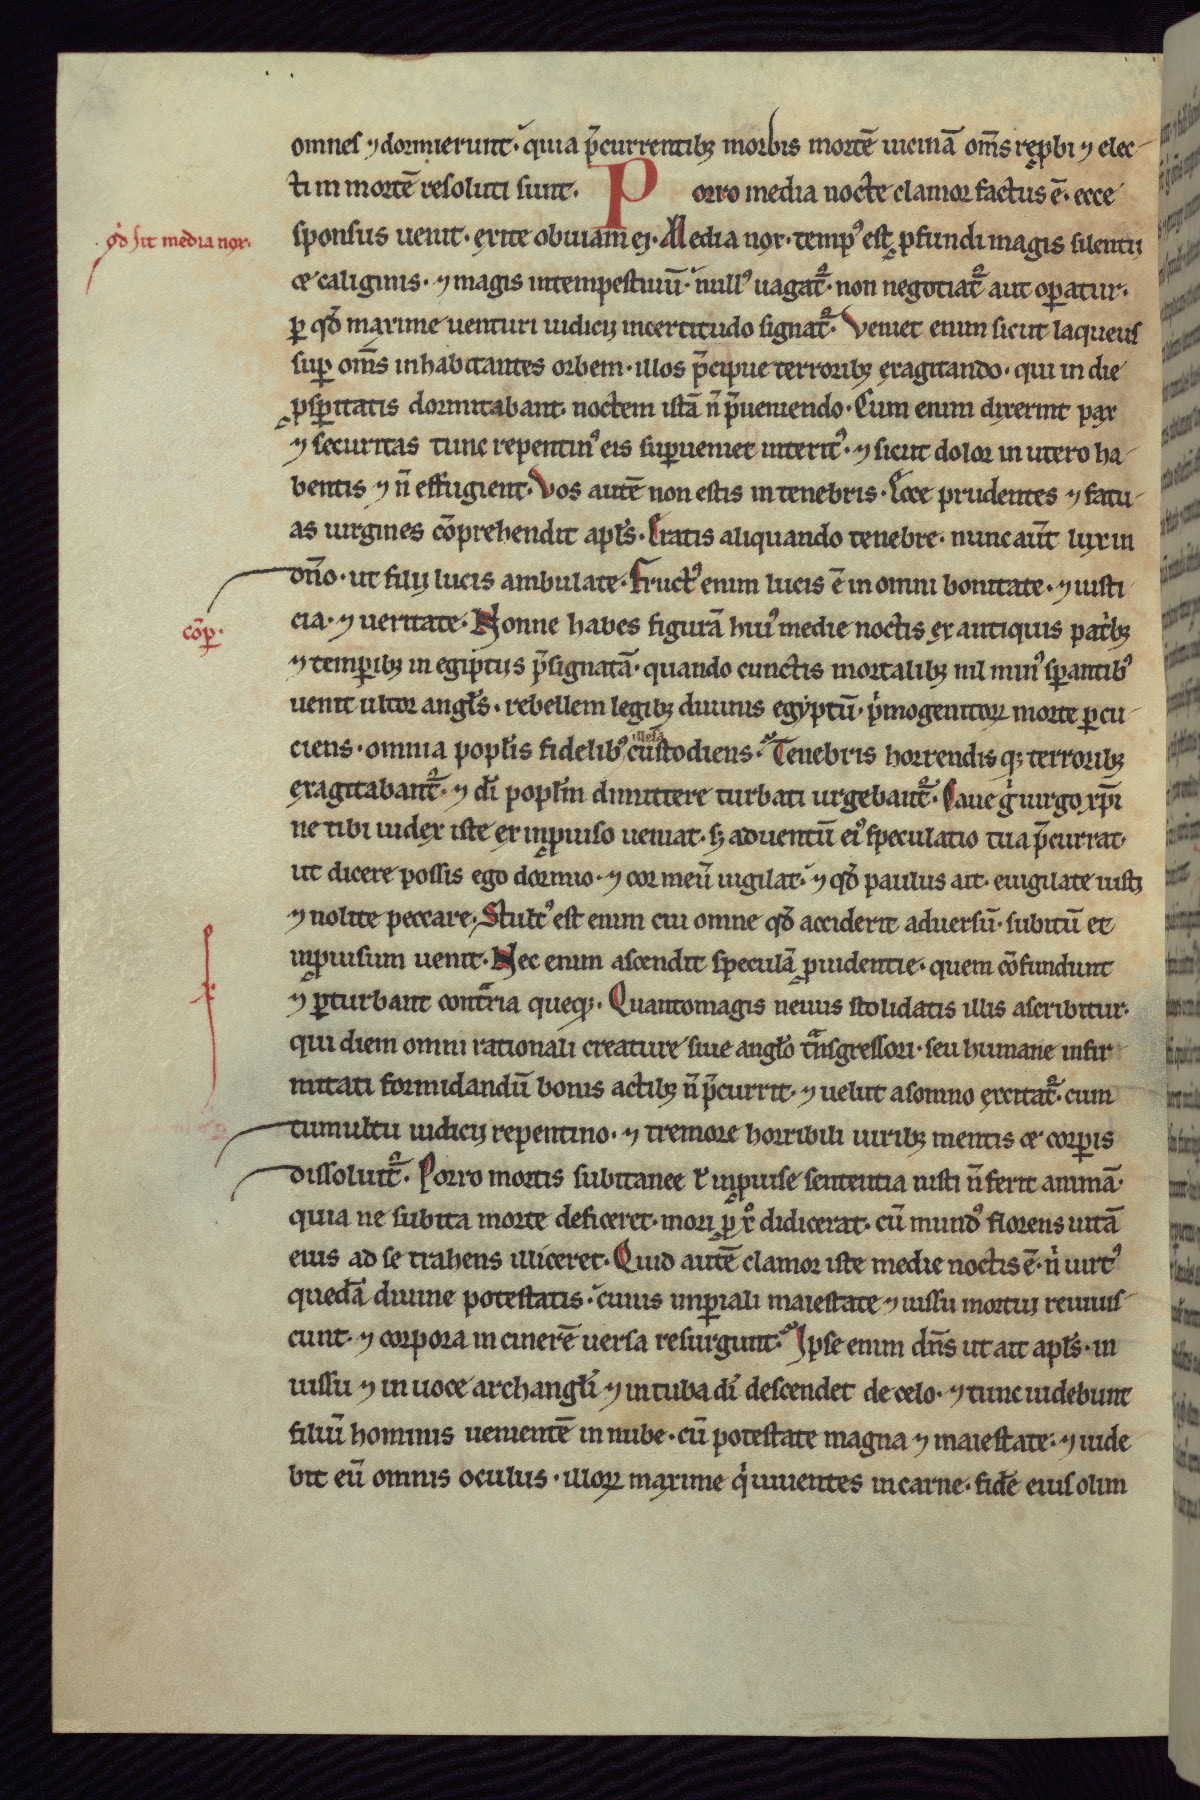 omnes ⁊ dormierunt· quia p̄currentibꝫ morbis mortē uicinā om̄s rep̱bi ⁊ elec-
ti in mortē resoluti sunt. Porro media nocte clamor factus ē· ecce
qd̄ sit media nox· sponsus uenit· exite obuiam ei· Media nox· tempꝰ est ꝓfundi magis silentii
& caliginis· ⁊ magis intempestiuū· nullꝰ uagat᷑· non negotiat᷑ aut oꝑatur·
ꝑ qd̄ maxime uenturi iudicij incertitudo signat᷑· Veniet enim sicut laqueus
suꝑ om̄s inhabitantes orbem· illos p̄cipue terroribꝫ exagitando· qui in die
ꝓsꝑitatis dormitabant· noctem istā n̄ p̄ueniendo· Cum enim dixerint pax
⁊ securitas tunc repentinꝰ eis suꝑueniet interitꝰ· ⁊ sicut dolor in utero ha-
bentis ⁊ n̄ effugient· Vos autē non estis in tenebris· Ecce prudentes ⁊ fatu-
as uirgines cōprehendit apl̄s· Eratis aliquando tenebre· nunc aūt lux in
dn̄o· ut filij lucis ambulate· Fructꝰ enim lucis ē in omni bonitate· ⁊ iusti
cōꝑ· cia· ⁊ ueritate· Nonne habes figurā huiꝰ medie noctis ex antiquis patribꝫ
⁊ temꝑibꝫ in egiptijs p̄signatā· quando cunctis mortalibꝫ nil minꝰ sꝑantibꝰ
uenit ultor angl̄s· rebellem legibꝫ diuinis egyptū· pͥmogenitoꝝ morte ꝑcu
ciens· omnia popl̄is fidelibꝰ illesa custodiens· Tenebris horrendis qꝫ terroribꝫ
exagitabant᷑· ⁊ dī popl̄m dimittere turbati urgebant᷑· Caue gͥ uirgo xp̄i
ne tibi iudex iste ex inꝓuiso ueniat· sꝫ aduentū eiꝰ speculatio tua p̄currat·
ut dicere possis ego dormio· ⁊ cor meū uigilat· ⁊ qd̄ paulus ait· euigilate iusti
⁊ nolite peccare· Stultꝰ est enim cui omne qd̄ acciderit aduersū· subitū et
inꝓuisum uenit· Nec enim ascendit speculā ꝓuidentie· quem cōfundunt
⁊ ꝑturbant contͣria queqꝫ· Quantomagis neuus stolidatis illis ascribitur·
qui diem omni rationali creature siue anglo tͣnsgressori· seu humane infir
mitati formidandū bonis actibꝫ n̄ p̄currit· ⁊ uelut a somno excitat᷑· cum
tumultu iudicij repentino· ⁊ tremore horribili uiribꝫ mentis & corꝑis
dissoluit᷑· Porro mortis subitanee ł inꝓuise sententia iusti n̄ ferit animā·
quia ne subita morte deficeret· mori ꝓ xͦ didicerat· cū mundꝰ florens uitā
eius ad se trahens illiceret· Quid autē clamor iste medie noctis ē· nͥ uirtꝰ
quedā diuine potestatis· cuius imꝑiali maiestate ⁊ iussu mortui reuiuis-
cunt· ⁊ corpora in cinerē uersa resurgunt· Ipse enim dn̄s ut ait apl̄s· in
iussu ⁊ in uoce archangl̄i ⁊ in tuba dī descendet de celo· ⁊ tunc uidebunt
filiū hominis uenientē in nube· cū potestate magna ⁊ maiestate· ⁊ uide
bit eū omnis oculus· illoꝝ maxime qͥ uiuentes in carne· fidē eius olim